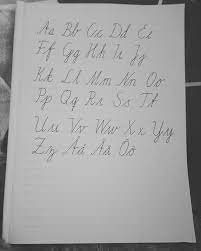 Aa Bb Cc Dd Ee
Ff Gg Hh Ii Jj
Kk Ll Mm Nn Oo
Pp Qq Rr Ss Tt
Uu Vv Ww Xx Yy
Zz Åå Ää Öö